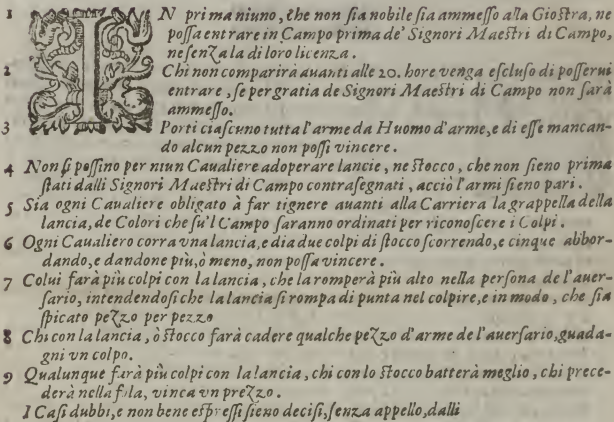 1 IN prima niuno, che non ſia nobile ſia ammeſſo alla Gioſtra, ne
poſſa entrare in Campo prima de' Signori Maeſtri di Campo,
ne ſenza la di loro licenza.
2 Chi non comparirà auanti alle 20. hore venga eſcluſo di poſſerui
entrare, ſe per gratia de Signori Maeſtri di Campo non ſarà
ammeſſo.
3 Porti ciaſcuno tutta l'arme da Huomo d'arme, e di eſſe mancan-
do alcun pezzo non poſſi vincere.
4 Non ſi poſſino per niun Caualiere adoperare lancie, ne ſtocco, che non ſieno prima
ſtati dalli Signori Maeſtri di Campo contraſegnati, acciò l'armi ſieno pari.
5 Sia ogni Caualiere obligato à far tignere auanti alla Carriera la grappella della
lancia, de Colori che ſu'l Campo ſaranno ordinati per riconoſcere i Colpi.
6 Ogni Caualiero corra vna lancia, e dia due colpi di ſtocco ſcorrendo, e cinque abbor-
dando, e dandone più, ò meno, non poſſa vincere.
7 Colui farà più colpi con la lancia, che la romperà più alto nella perſona de l'auer-
ſario, intendendoſi che la lancia ſi rompa di punta nel colpire, e in modo, che ſia
ſpicato pezzo per pezzo
8 Chi con la lancia, ò ſtocco farà cadere qualche pezzo d'arme de l'auerſario, guada-
gni vn colpo.
9 Qualunque farà più colpi con la lancia, chi con lo ſtocco batterà meglio, chi prece-
derà nella fila, vinca vn prezzo.
I Caſi dubbi, e non bene eſpreſſi ſieno deciſi, ſenza appello, dalli